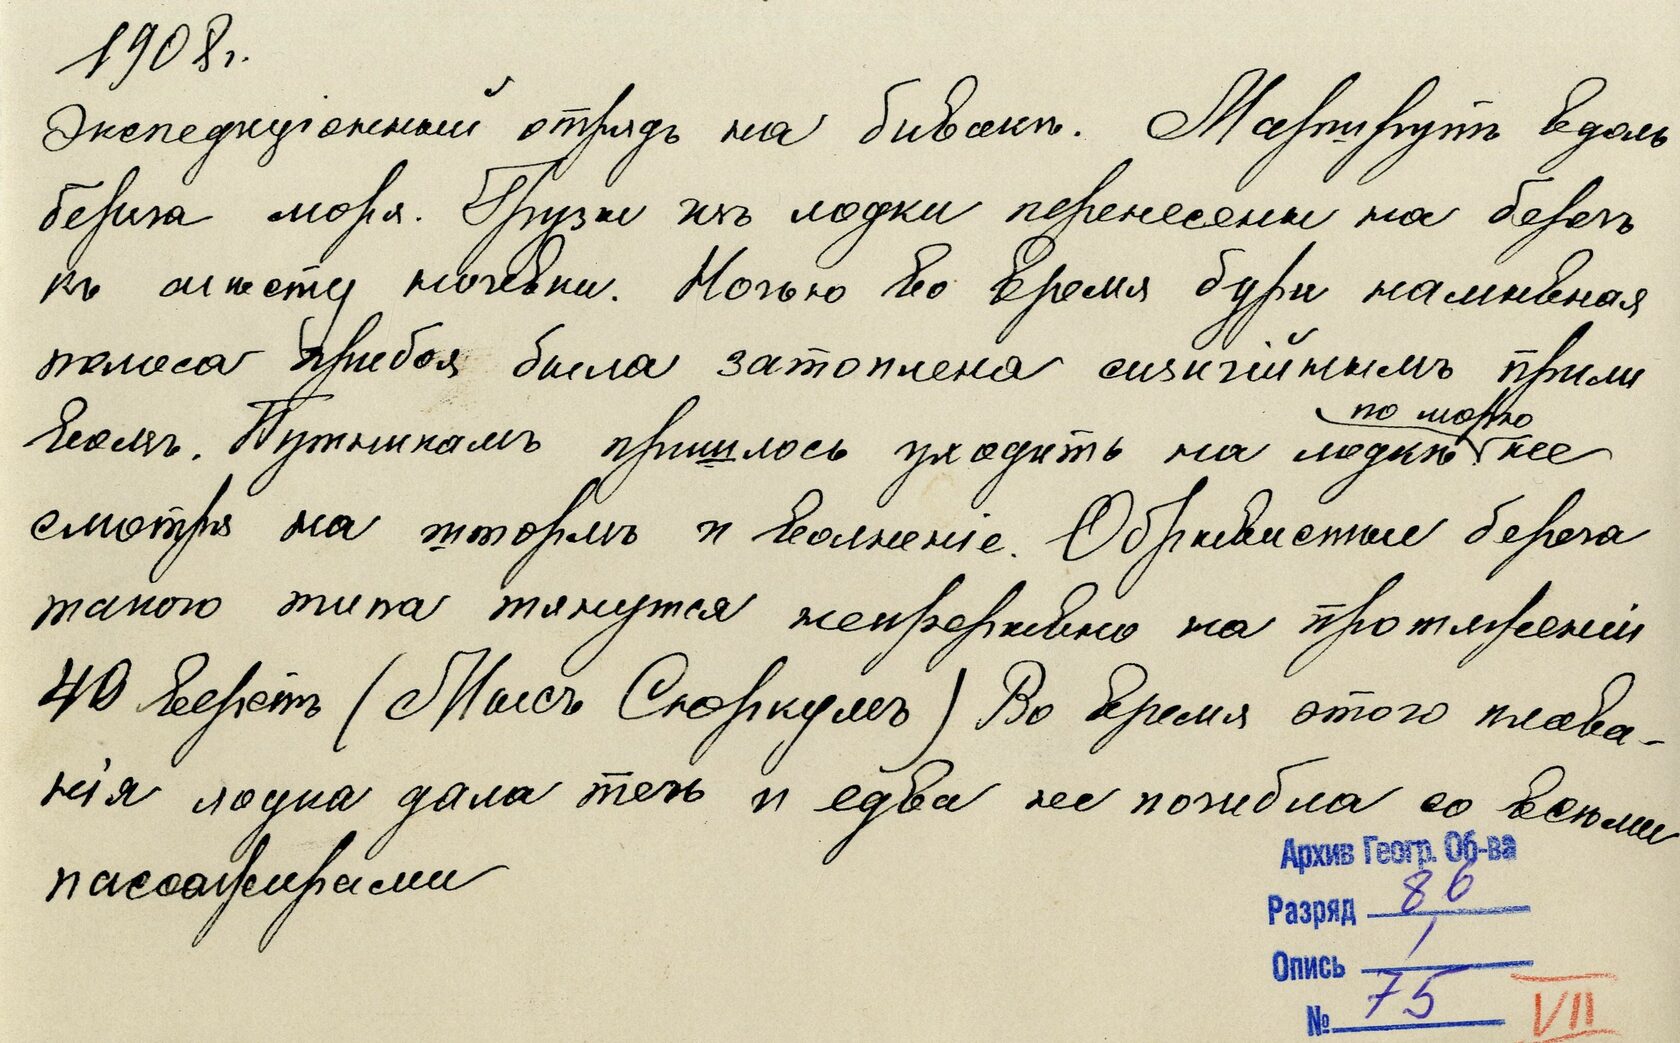 1908 г.
Экспедиціонный отрядъ на бивакѣ. Маршрутъ вдоль
берега моря. Грузы изъ лодки перенесены на берегъ
къ мѣсту ночевки. Ночью во время бури намывная
полоса прибоя была затоплена сизигійнымъ прили
вомъ. Путникамъ пришлось уходить на лодкѣ по морю не
смотря на штормъ и волненіе. Обрывистые берега
такого типа тянутся непрерывно на протяженіи
40 верстъ (Мысъ Сюркумъ) Во время этого плава-
нія лодка дала течь и едва не погибла со всѣми
пассажирами
Архив Геогр. Об-ва
Разряд 86
Опись 1
№ 75
VII